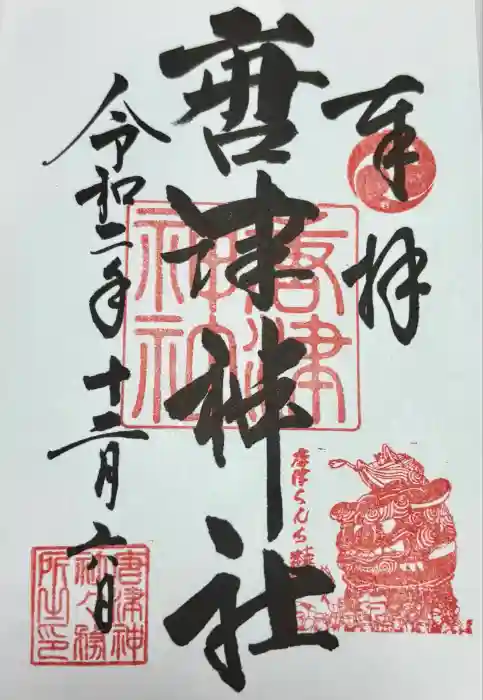 奉拝
唐津神社
令和二年十二月六日
唐津神社
唐津くんち
唐津神
社々務
所之印